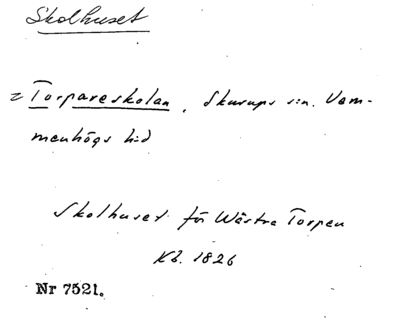 Skolhuset
= Torpareskolan, Skurups sn. Vem-
menhögs hd
Skolhuset för Wästra Torpen
Kb. 1826
Nr 7521.